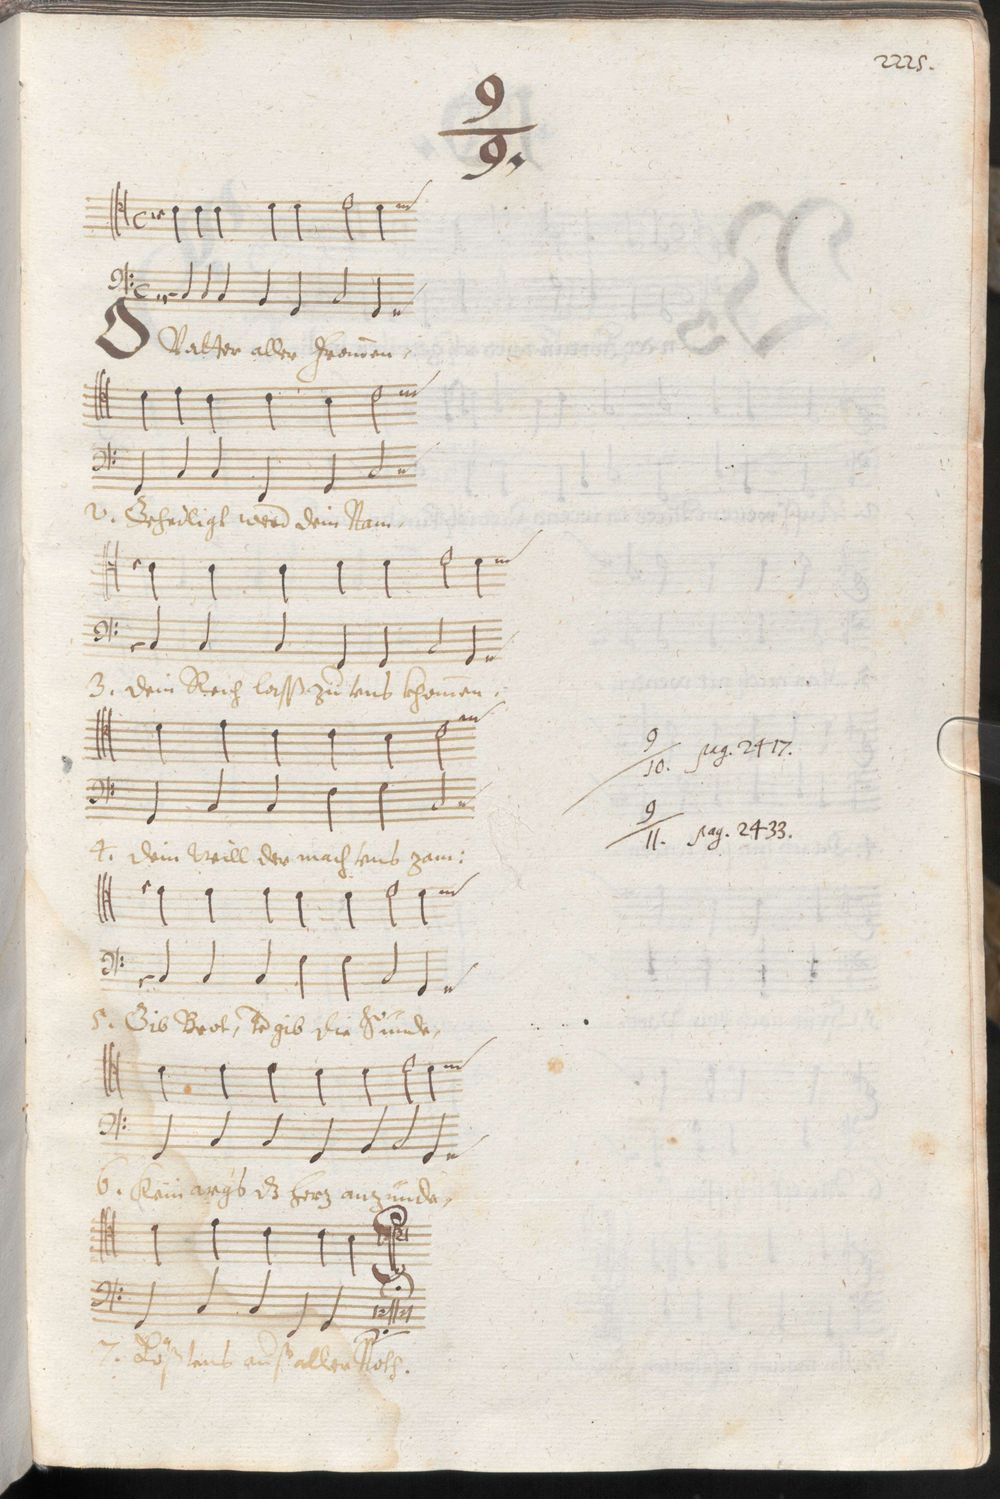 2225.
9
9.
O Vatter aller Fromen,
2. Geheiligt werd dein Nam.
3. dein Reich lasß zu uns khomen.
4. dein Will der mach uns zam:
5. Gib Brot, vergib die Sünde,
6. Kein args dz herz anzünde,
9
10. pag. 2417.
9
11. pag. 2433.
7. Löß uns auß aller Noth.